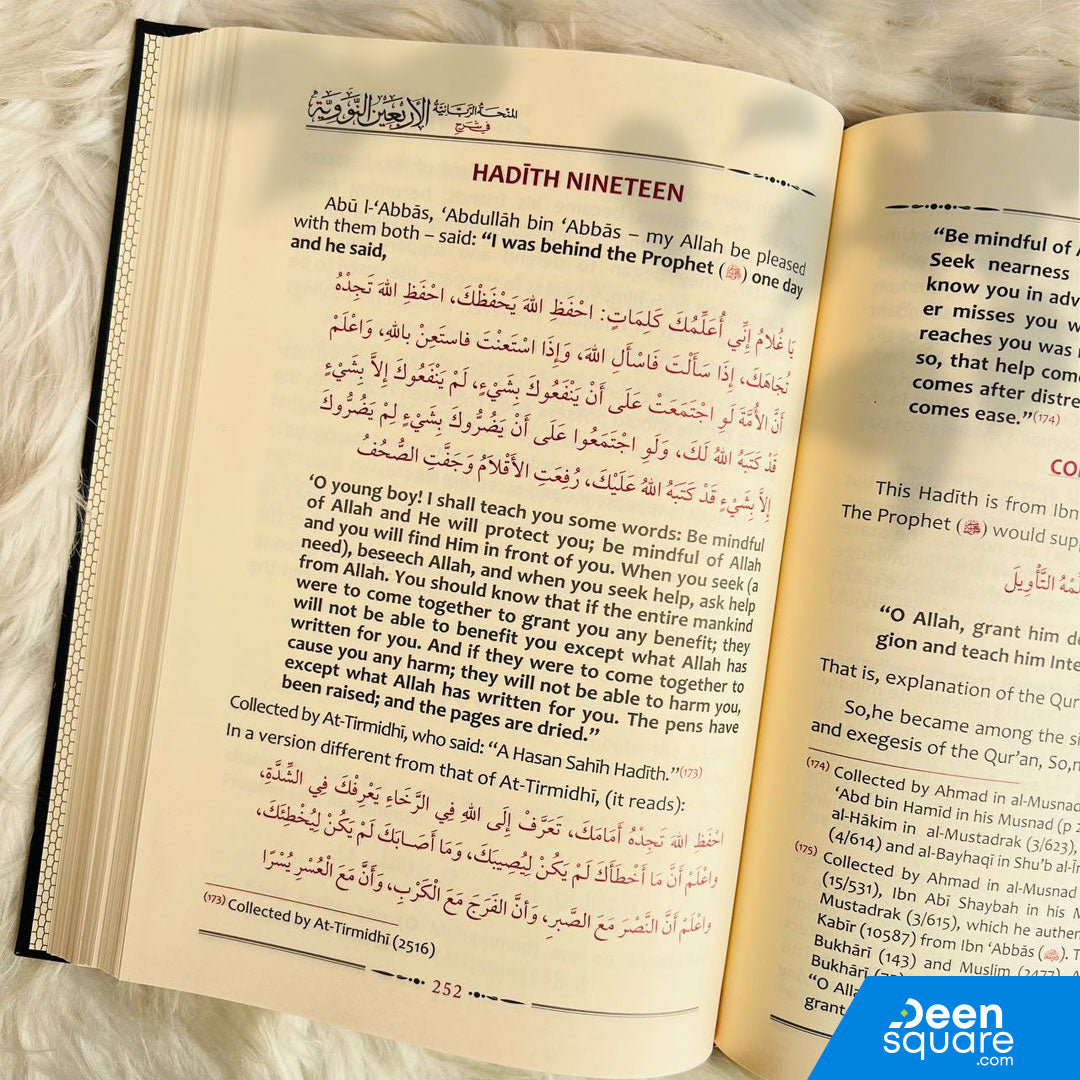 المنحة الربانية
في شرح
الأربعين النووية
HADĪTH NINETEEN
Abū l-‘Abbās, ‘Abdullāh bin ‘Abbās – my Allah be pleased
with them both – said: “I was behind the Prophet (ﷺ) one day
and he said,
يَا غُلَامُ إِنِّي أُعَلِّمُكَ كَلِمَاتٍ: احْفَظِ اللهَ يَحْفَظْكَ، احْفَظِ اللهَ تَجِدْهُ
تُجَاهَكَ، إِذَا سَأَلْتَ فَاسْأَلِ اللهَ، وَإِذَا اسْتَعَنْتَ فاستَعِنْ بِاللهِ، وَاعْلَمْ
أَنَّ الأُمَّةَ لَوِ اجْتَمَعَتْ عَلَى أَنْ يَنْفَعُوكَ بِشَيْءٍ، لَمْ يَنْفَعُوكَ إِلاَّ بِشَيْءٍ
قَدْ كَتَبَهُ اللهُ لَكَ، وَلَوِ اجْتَمَعُوا عَلَى أَنْ يَضُرُّوكَ بِشَيْءٍ لِمْ يَضُرُّوكَ
إِلاَّ بِشَيْءٍ قَدْ كَتَبَهُ اللهُ عَلَيْكَ، رُفِعَتِ الأَقْلَامُ وَجَفَّتِ الصُّحُفُ
‘O young boy! I shall teach you some words: Be mindful
of Allah and He will protect you; be mindful of Allah
and you will find Him in front of you. When you seek (a
need), beseech Allah, and when you seek help, ask help
from Allah. You should know that if the entire mankind
were to come together to grant you any benefit; they
will not be able to benefit you except what Allah has
written for you. And if they were to come together to
cause you any harm; they will not be able to harm you,
except what Allah has written for you. The pens have
been raised; and the pages are dried.”
Collected by At-Tirmidhī, who said: “A Hasan Sahīh Hadīth.”(173)
In a version different from that of At-Tirmidhī, (it reads):
احْفَظِ اللهَ تَجِدْهُ أَمَامَكَ، تَعَرَّفْ إِلَى اللهِ فِي الرَّخَاءِ يَعْرِفْكَ فِي الشِّدَّةِ،
واعْلَمْ أَنَّ مَا أَخْطَأَكَ لَمْ يَكُنْ لِيُصِيبَكَ، وَمَا أَصَابَكَ لَمْ يَكُنْ لِيُخْطِئَكَ،
واعْلَمْ أَنَّ النَّصْرَ مَعَ الصَّبرِ، وَأنَّ الفَرَجَ مَعَ الْكَرْبِ، وَأَنَّ مَعَ الْعُسْرِ يُسْرًا
(173) Collected by At-Tirmidhī (2516)
252
“Be mindful of
Seek nearness
know you in adv
er misses you w
reaches you was
so, that help com
comes after distre
comes ease.”(174)
CO
This Hadīth is from Ibn
The Prophet (ﷺ) would sup
لِّمْهُ التَّأْوِيلَ
“O Allah, grant him d
gion and teach him Inte
That is, explanation of the Qur
So,he became among the si
and exegesis of the Qur’an, So,
(174) Collected by Ahmad in al-Musnad
‘Abd bin Hamīd in his Musnad (p
al-Hākim in al-Mustadrak (3/623),
(4/614) and al-Bayhaqī in Shu‘b al-
(175) Collected by Ahmad in al-Musnad
(15/531), Ibn Abī Shaybah in his M
Mustadrak (3/615), which he authen
Kabīr (10587) from Ibn ‘Abbās
Bukhārī (143) and Muslim (2477)
Bukhārī
“O Alla
grant
Deen
square
.com